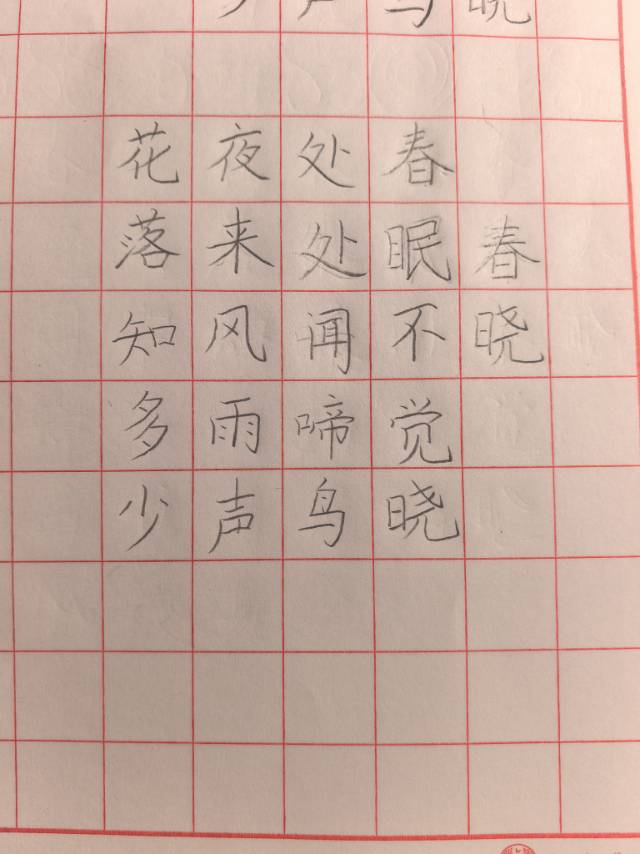 少声鸟晓
春晓
春眠不觉晓
处处闻啼鸟
夜来风雨声
花落知多少